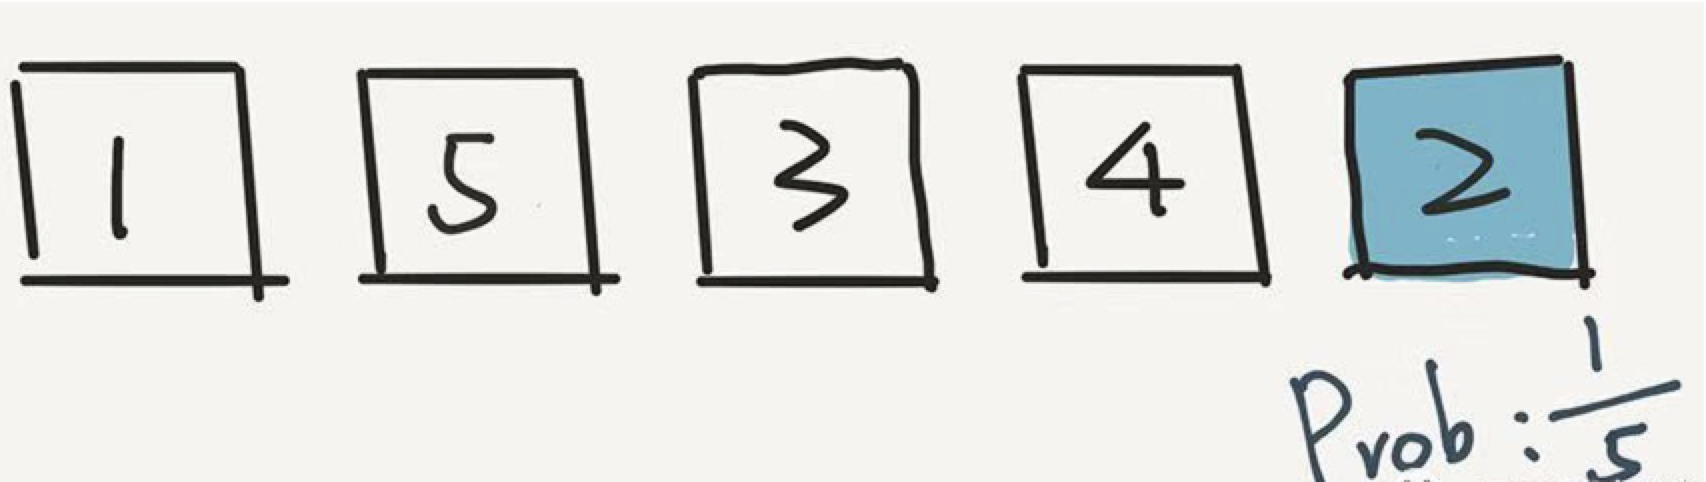 1 5 3 4 2
Prob: 1/5